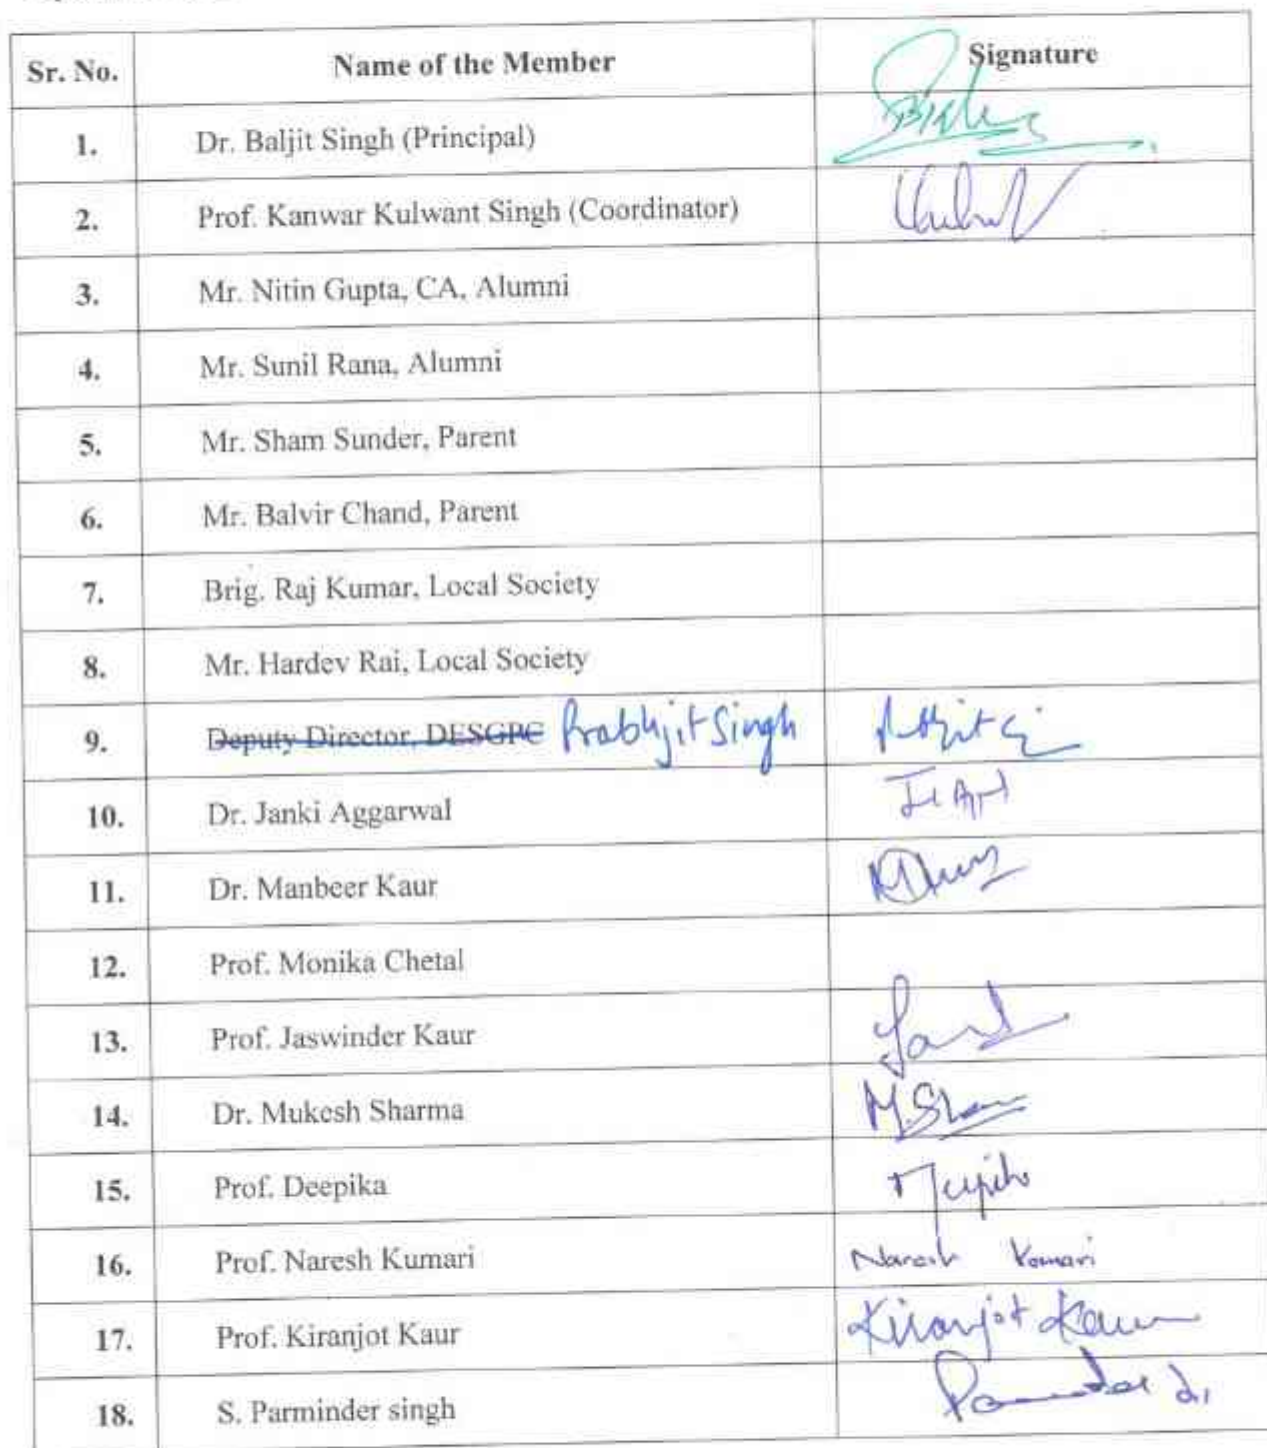 Sr. No. Name of the Member Signature
1. Dr. Baljit Singh (Principal)
2. Prof. Kanwar Kulwant Singh (Coordinator)
3. Mr. Nitin Gupta, CA, Alumni
4. Mr. Sunil Rana, Alumni
5. Mr. Sham Sunder, Parent
6. Mr. Balvir Chand, Parent
7. Brig. Raj Kumar, Local Society
8. Mr. Hardev Rai, Local Society
9. Deputy Director, DESGPC Prabhjit Singh
10. Dr. Janki Aggarwal
11. Dr. Manbeer Kaur
12. Prof. Monika Chetal
13. Prof. Jaswinder Kaur
14. Dr. Mukesh Sharma
15. Prof. Deepika
16. Prof. Naresh Kumari Naresh Kumari
17. Prof. Kiranjot Kaur Kiranjot Kaur
18. S. Parminder singh